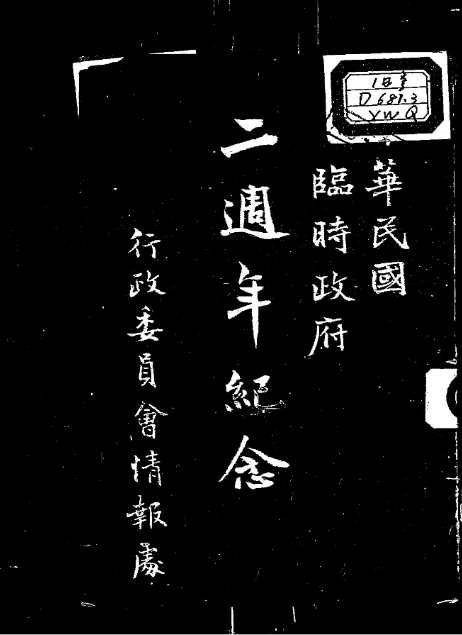 華民國
臨時政府
二週年紀念
行政委員會情報處
D 681.3
YWQ